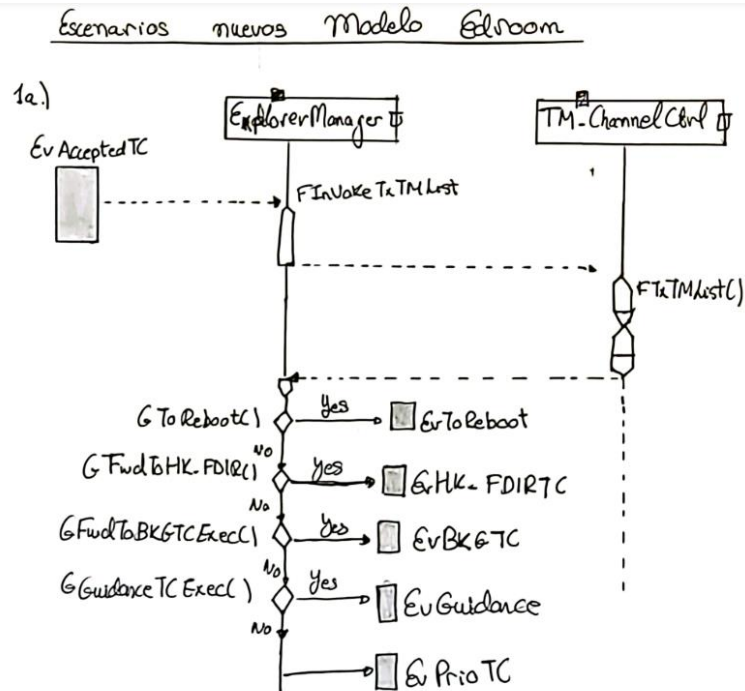 Escenarios nuevos Modelo Edroom
1a.)
ExplorerManager
TM-Channel Ctrl
EvAcceptedTC
FInvokeTxTMList
FTxTMList()
GToReboot()
Yes
EvToReboot
No
GFwdToHK-FDIR()
Yes
EvHK-FDIRTC
No
GFwdToBKGTCExec()
Yes
EvBKGTC
No
GGuidanceTCExec()
Yes
EvGuidance
No
EvPrioTC